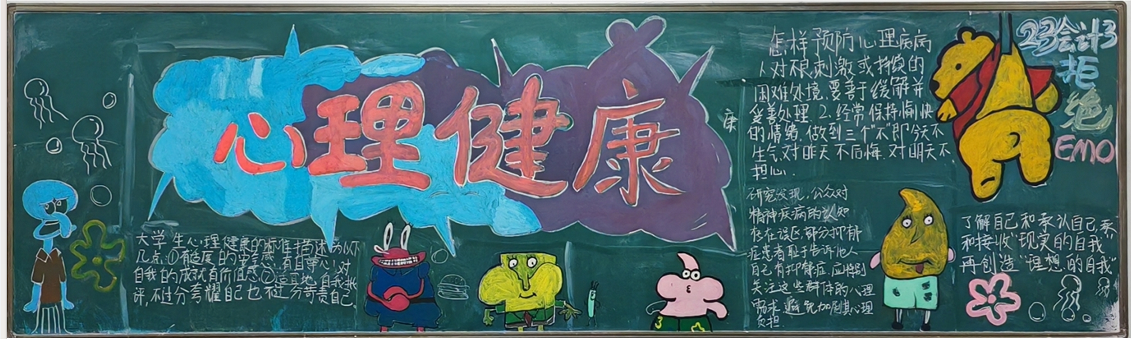 心理健康
大学生心理健康的标准描述为以下
几点:①有适度的安全感,有自尊心,对
自我的成就有所值感②适当地自我批
评,不过分夸耀自己也不过分苛责自己
怎样预防心理疾病
1.对不良刺激或持续的
困难处境,要善于缓解并
妥善处理.2.经常保持愉快
的情绪,做到三个"不"即今天不
生气,对昨天不后悔.对明天不
担心.
康
研究发现,公众对
精神疾病的认知
存在误区部分抑郁
症患者耻于告诉他人
自己有抑郁症,应特别
关注这些群体的心理
需求,避免加剧其心理
负担
23会计3
拒
绝
EMO
了解自己和承认自己,
和接收"现实的自我"
再创造"理想的自我"